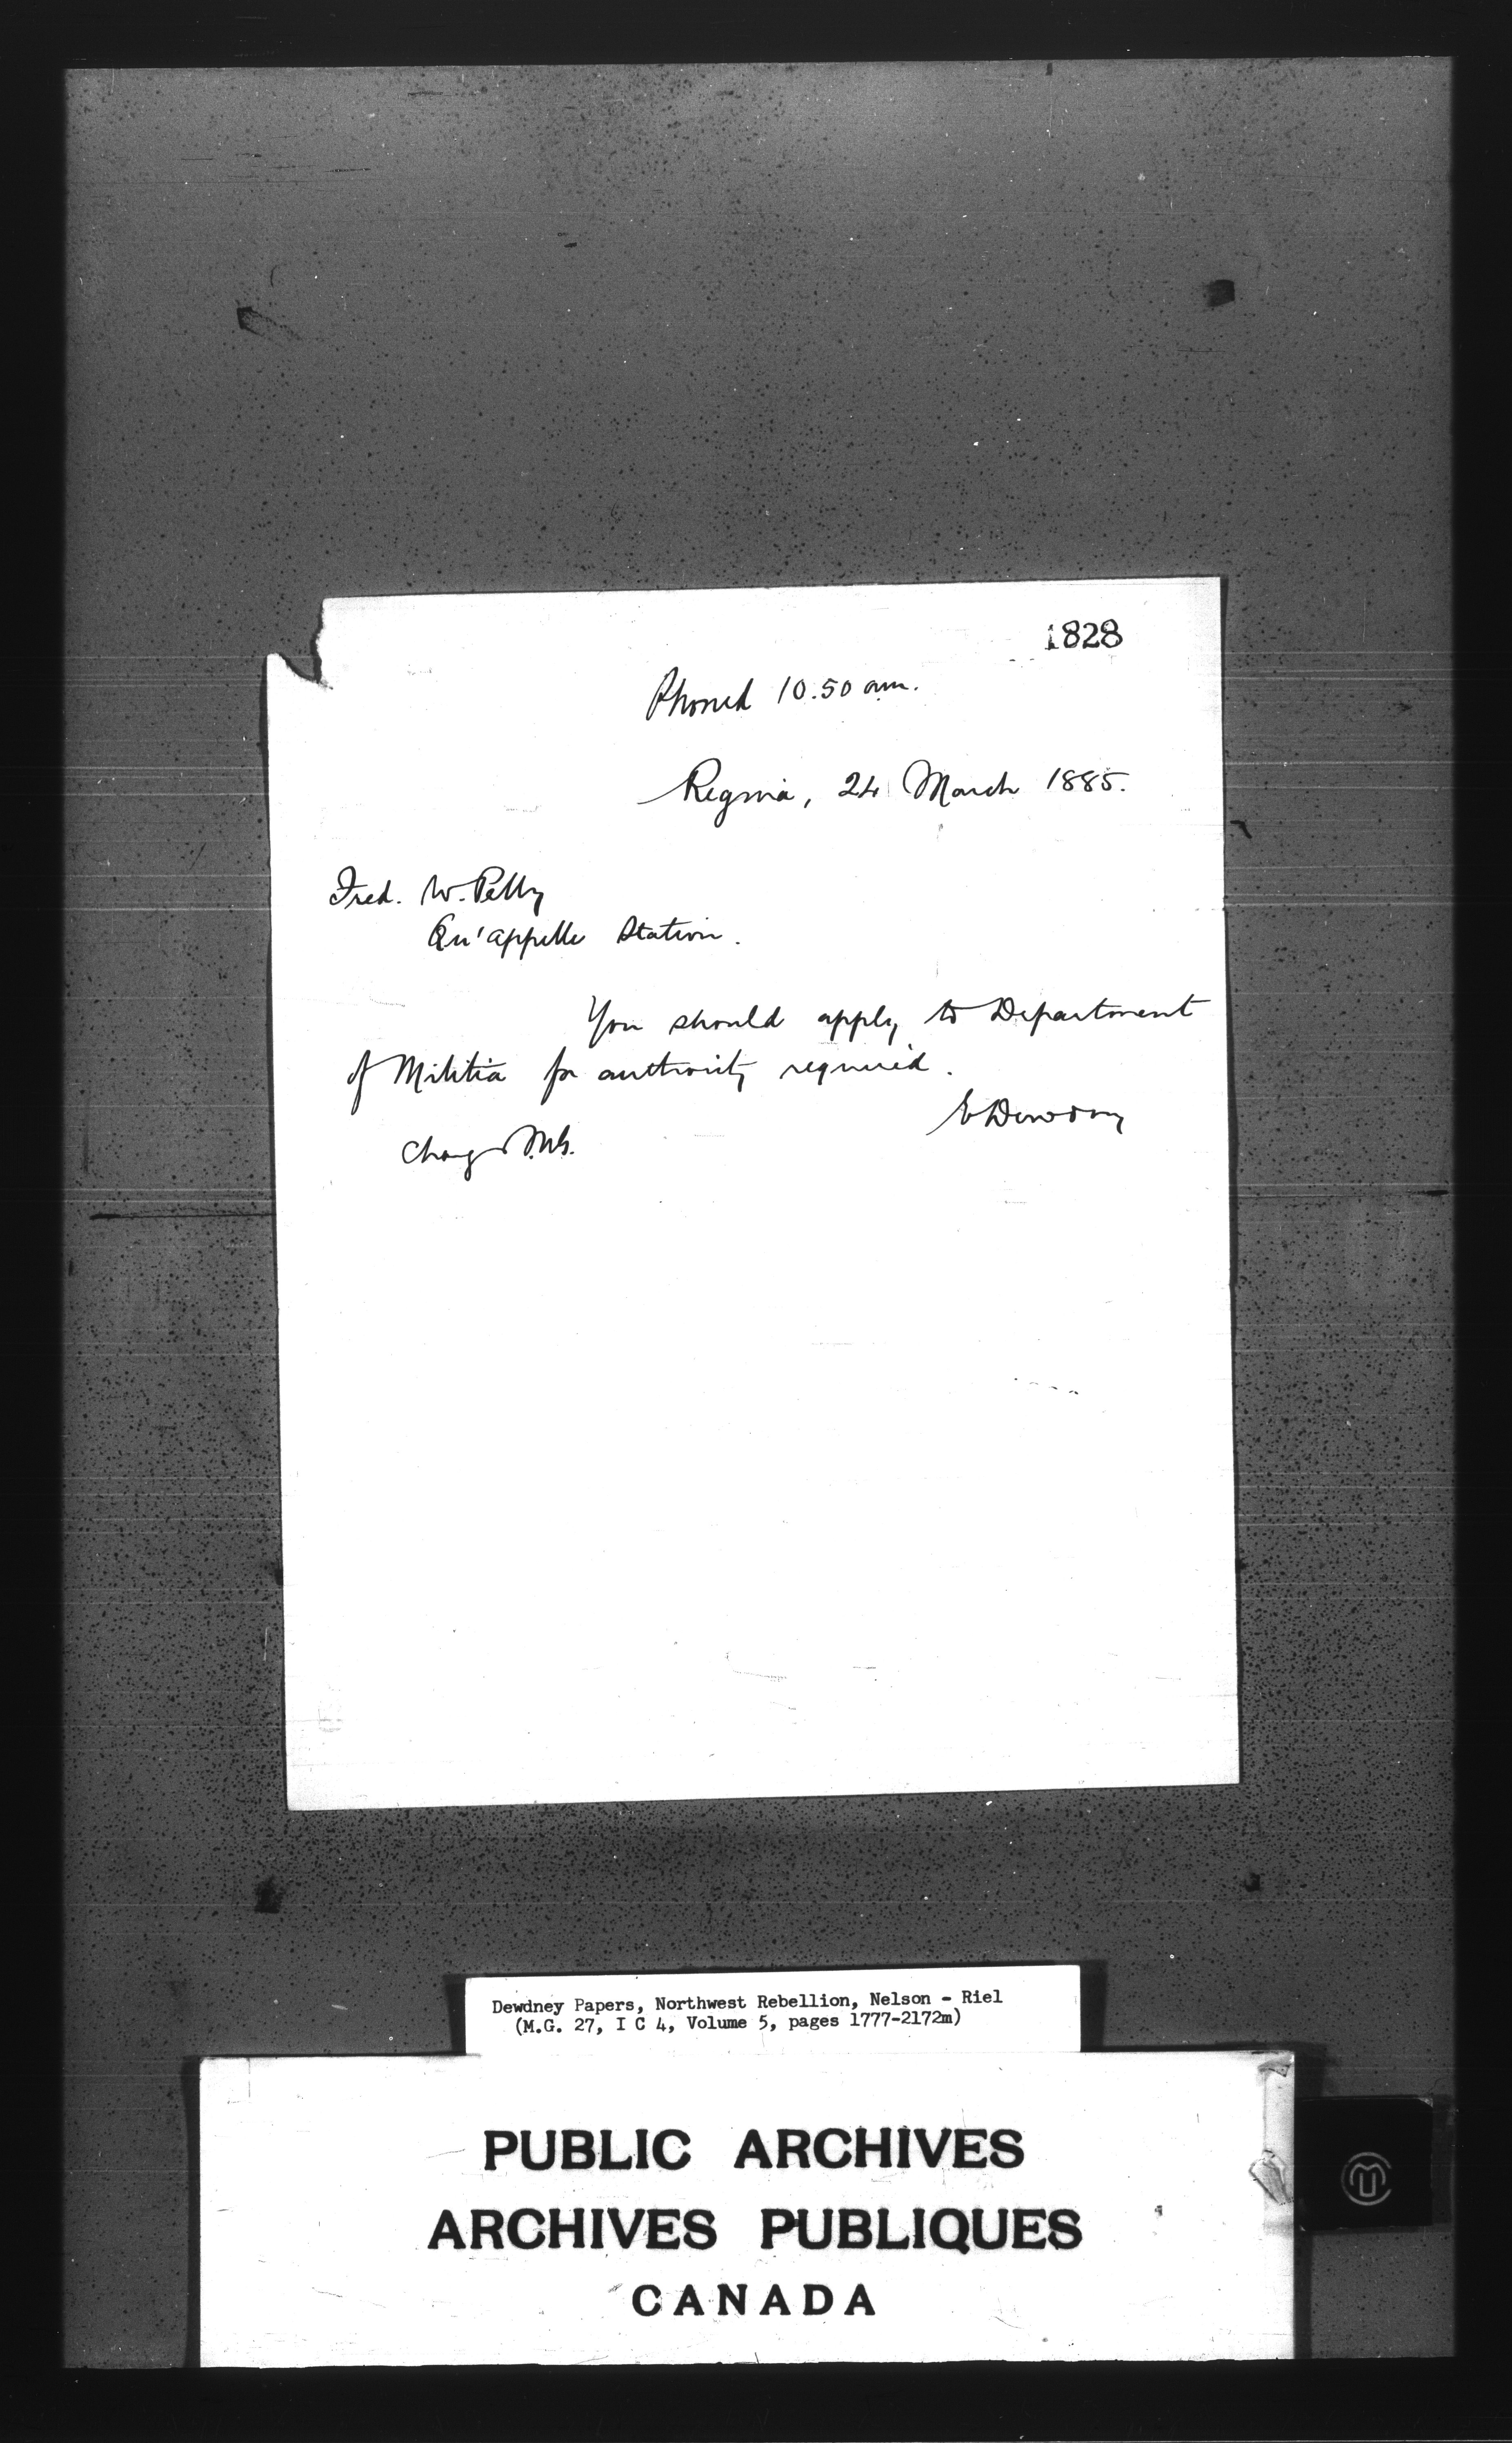 1828
Phoned 10.50 am.
Regina, 24 March 1885.
Fred. W. Pelly
Qu'appelle Station.
You should apply to Department
of Militia for authority required.
E Dewdney
Charge
Dewdney Papers, Northwest Rebellion, Nelson - Riel
(M.G. 27, I C 4, Volume 5, pages 1777-2172m)
PUBLIC ARCHIVES
ARCHIVES PUBLIQUES
CANADA